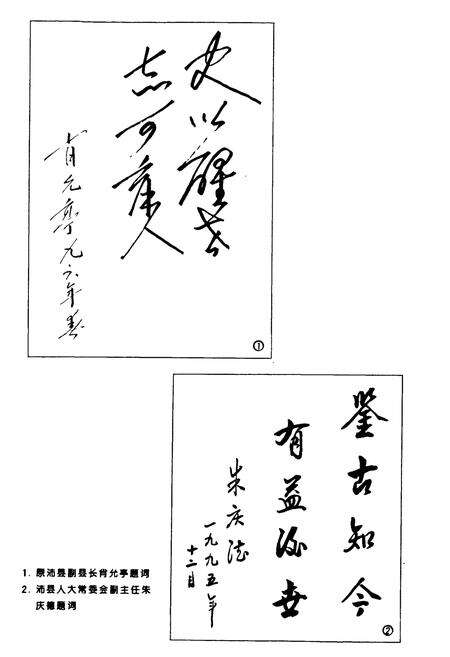 史以醒世
志可育人
肖允亭九六年春
①
鉴古知今
有益后世
朱庆德
一九九五年
十二月
②
1. 原沛县副县长肖允亭题词
2. 沛县人大常委会副主任朱
庆德题词